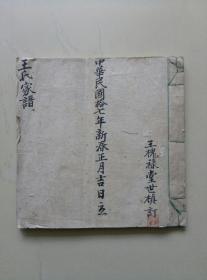 王槐祿堂世楨訂
中華民國拾七年新春正月吉日立
王氏家譜